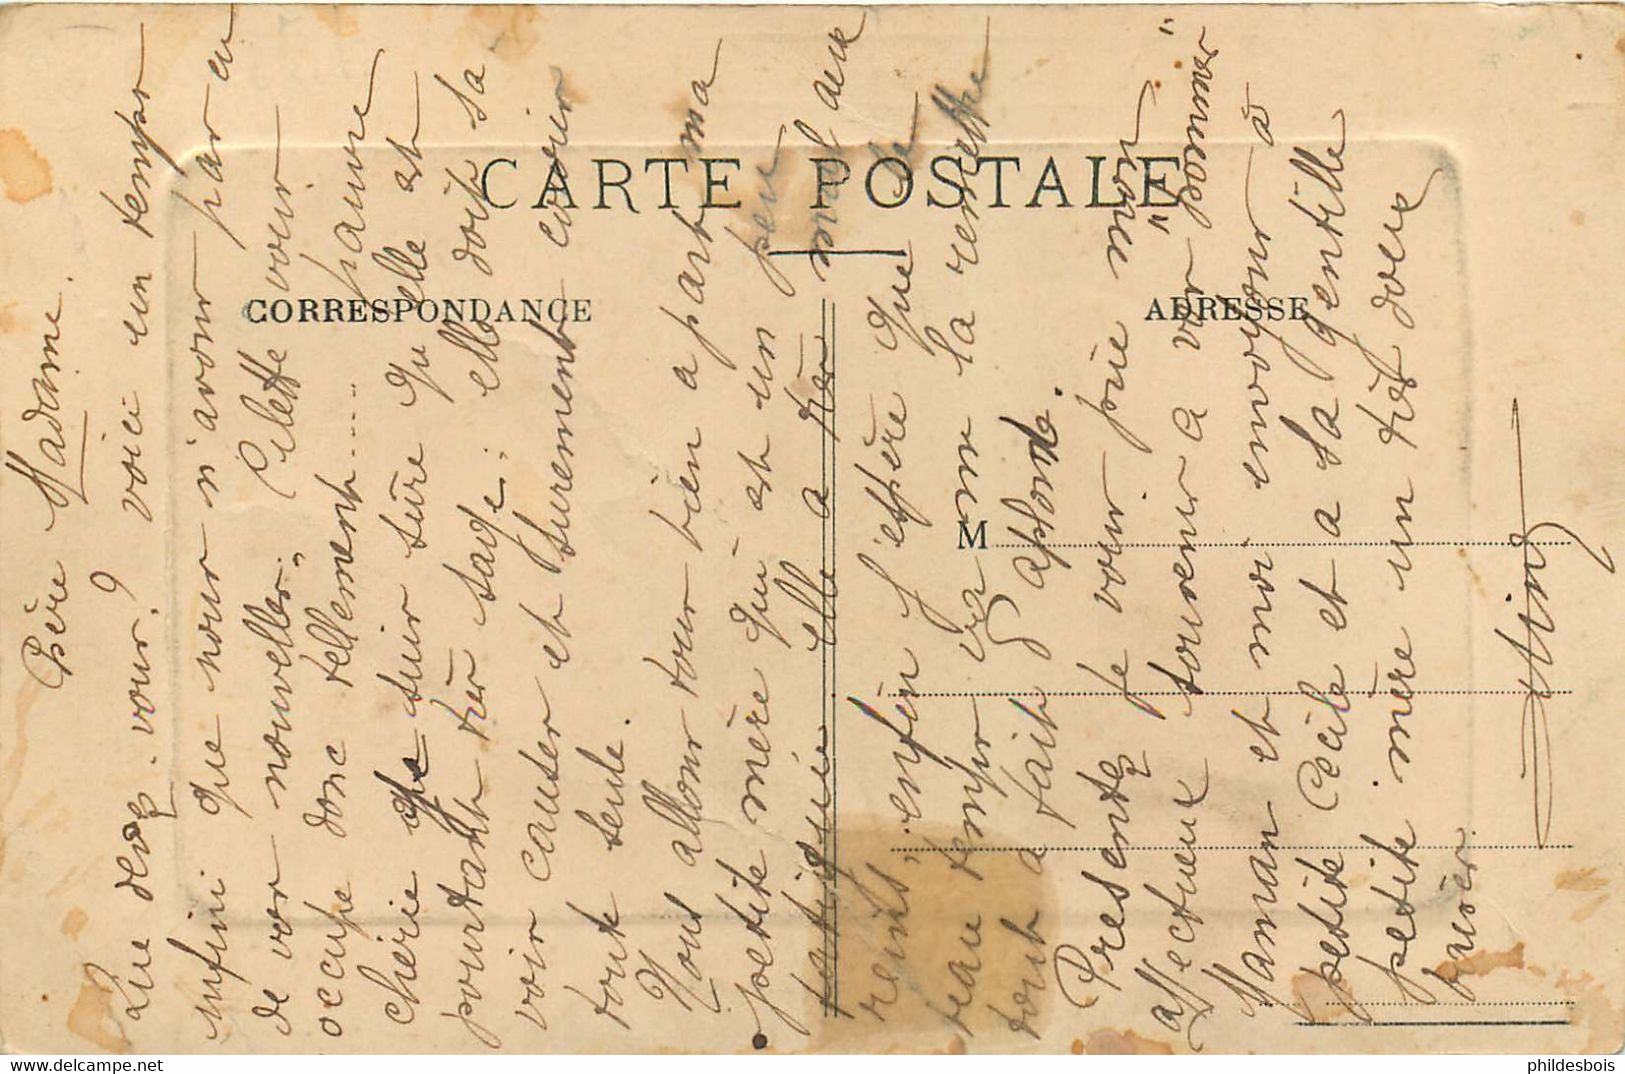 CARTE POSTALE
CORRESPONDANCE
ADRESSE
M
Chère Madame.
Que devez vous? voici un temps
infini que nous n'avons pas eu
de vos nouvelles. Cilette vous
occupe donc tellement.... pauvre
chérie je suis sure qu elle est
pourtant très sage; elle doit sa
voir causer et surement courir
toute seule.
Nous allons tous bien a part ma
petite mère qui est un peu
fatiguée elle a très mal aux
reins, enfin j'espère que le
beau temps va nous la remettre
tout a fait d aplomb.
Présentez je vous prie mon
affectueux souvenir a vos "ménages"
Maman et moi envoyons a
petite Cécile et a sa gentille
petite mère un très doux
baiser.
phildesbois